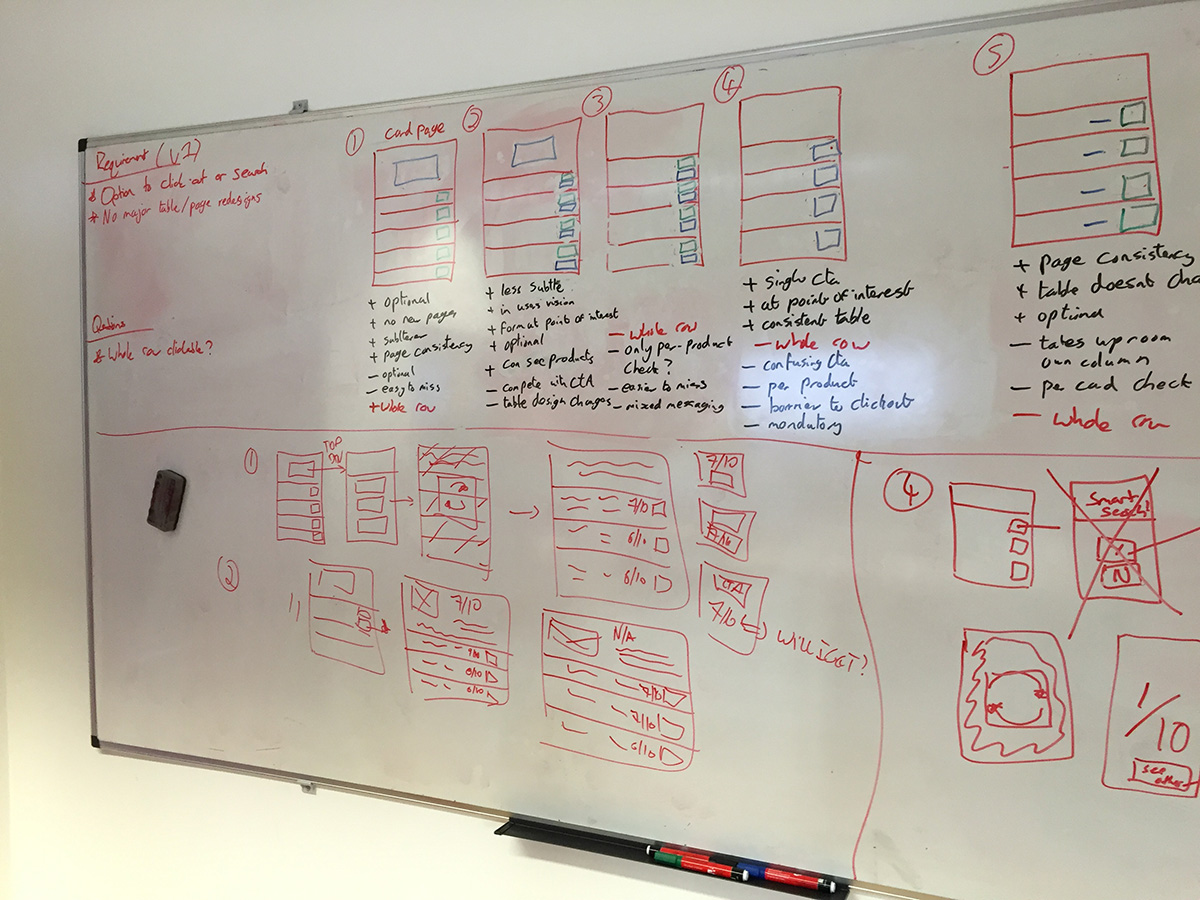 Requirement (v.1)
* Option to click-out or search
* No major table/page redesigns
Questions
* Whole row clickable?
1
card page
+ optional
+ no new pages
+ subtler
+ page consistency
- optional
- easy to miss
+ whole row
2
+ less subtle
+ in users vision
+ format point of interest
+ optional
+ can see products
- compete with CTA
- table design changes
3
- whole row
- only per-product
check?
- easier to miss
- mixed messaging
4
+ single cta
+ at point of interest
+ consistent table
- whole row
- confusing cta
- per product
- barrier to clickout
- mandatory
5
+ page consistency
+ table doesnt cha
+ optional
- takes up room
own column
- per card check
- whole row
1
TOP
7/10
6/10
6/10
7/10
7/10
CTA
7/10
WILL I GET?
2
7/10
7/10
6/10
6/10
N/A
7/10
7/10
6/10
4
Smart
Search!
Y
N
1/10
see
others